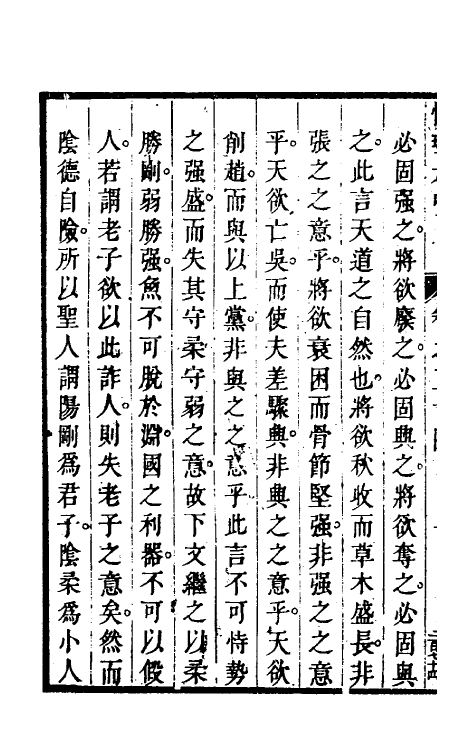 必固强之將欲廢之必固興之將欲奪之必固與
之此言天道之自然也將欲秋收而草木盛長非
張之之意乎將欲衰困而骨節堅强非强之之意
乎天欲亡吳而使夫差驟興非興之之意乎天欲
削趙而與以上黨非與之之意乎此言不可恃勢
之强盛而失其守柔守弱之意故下文繼之以柔
勝剛弱勝强魚不可脫於淵國之利器不可以假
人若謂老子欲以此詐人則失老子之意矣然而
陰德自險所以聖人謂陽剛爲君子陰柔爲小人